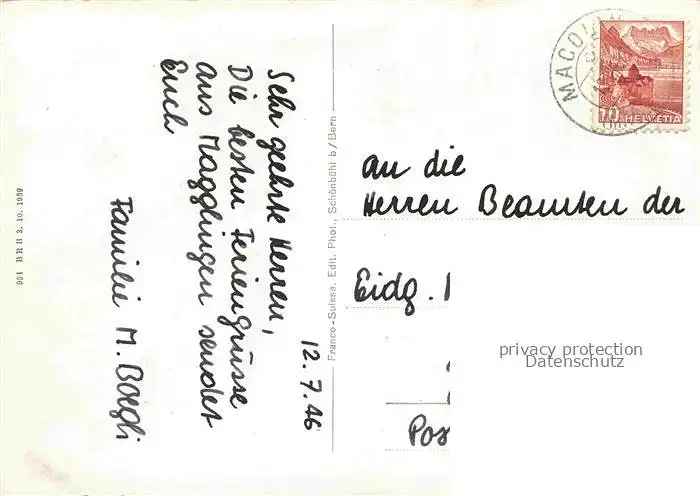 12.7.46
Sehr geehrte Herren,
Die besten Feriengrüsse
aus Magglingen sendet
Euch
Familie M. Boegli
984 BRB 3. 10. 1939
Franco-Suisse, Edit. Phot., Schönbühl b/Bern
MACOLIN
10 HELVETIA
An die
Herren Beamten der
Eidg.
Pos
privacy protection
Datenschutz